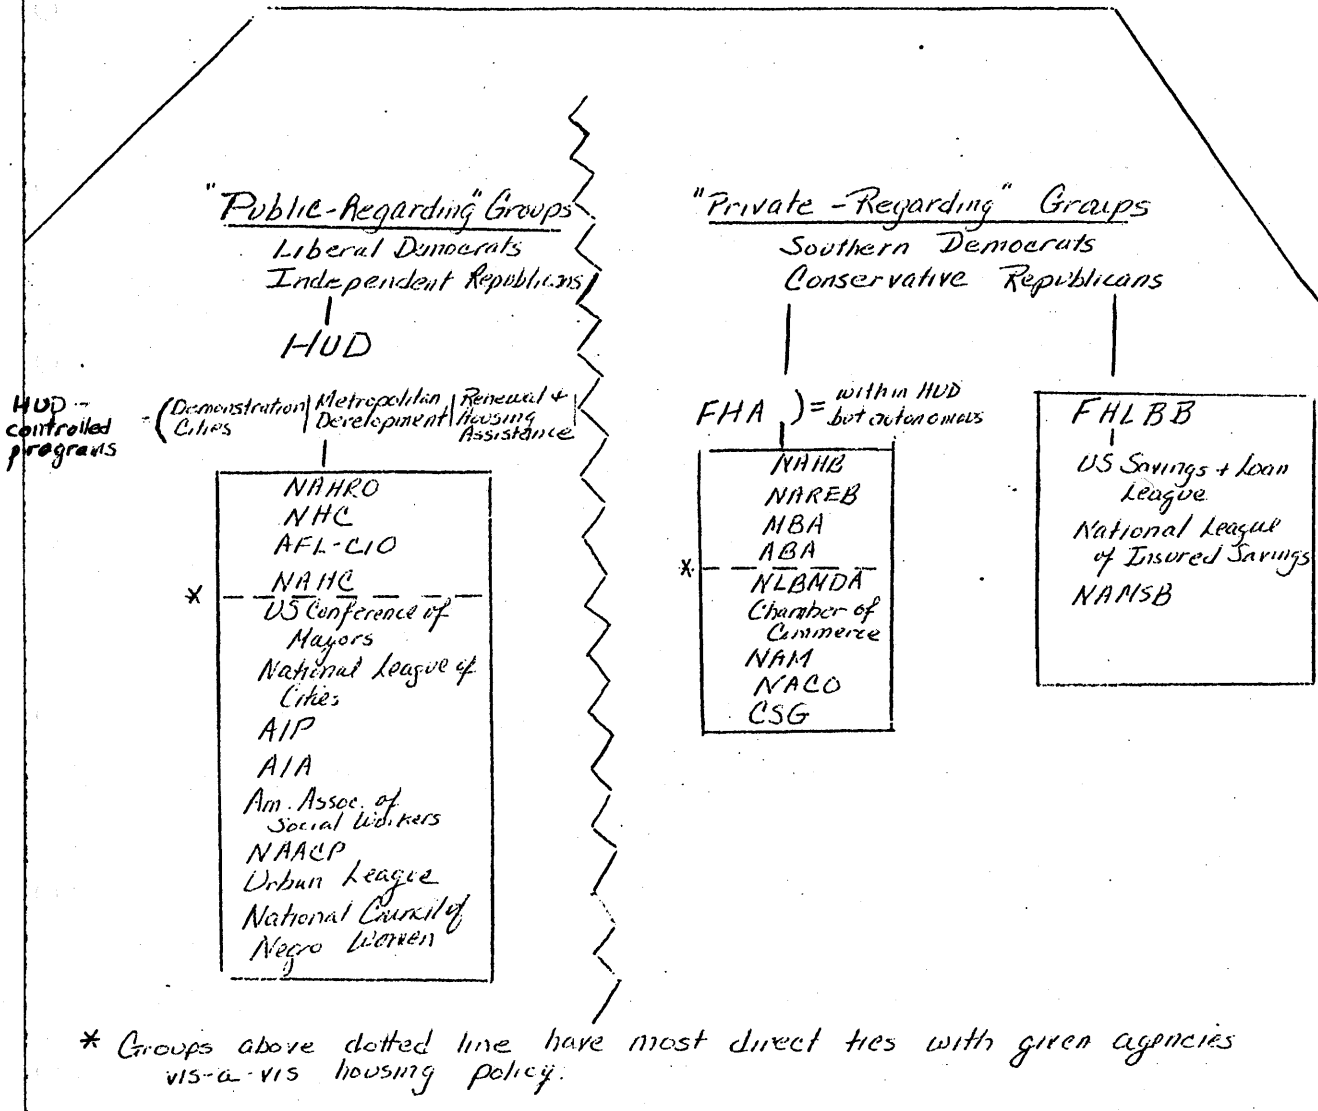 "Public-Regarding" Groups
Liberal Democrats
Independent Republicans
HUD
HUD-
controlled
programs
- (Demonstration | Metropolitan | Renewal +
Cities | Development | Housing
Assistance
NAHRO
NHC
AFL-CIO
NAHC
*
US Conference of
Mayors
National League of
Cities
AIP
AIA
Am. Assoc. of
Social Workers
NAACP
Urban League
National Council of
Negro Women
"Private-Regarding" Groups
Southern Democrats
Conservative Republicans
FHA ) = within HUD
but autonomous
NAHB
NAREB
MBA
ABA
*
NLBMDA
Chamber of
Commerce
NAM
NACO
CSG
FHLBB
US Savings + Loan
League
National League
of Insured Savings
NAMSB
* Groups above dotted line have most direct ties with given agencies
vis-a-vis housing policy.